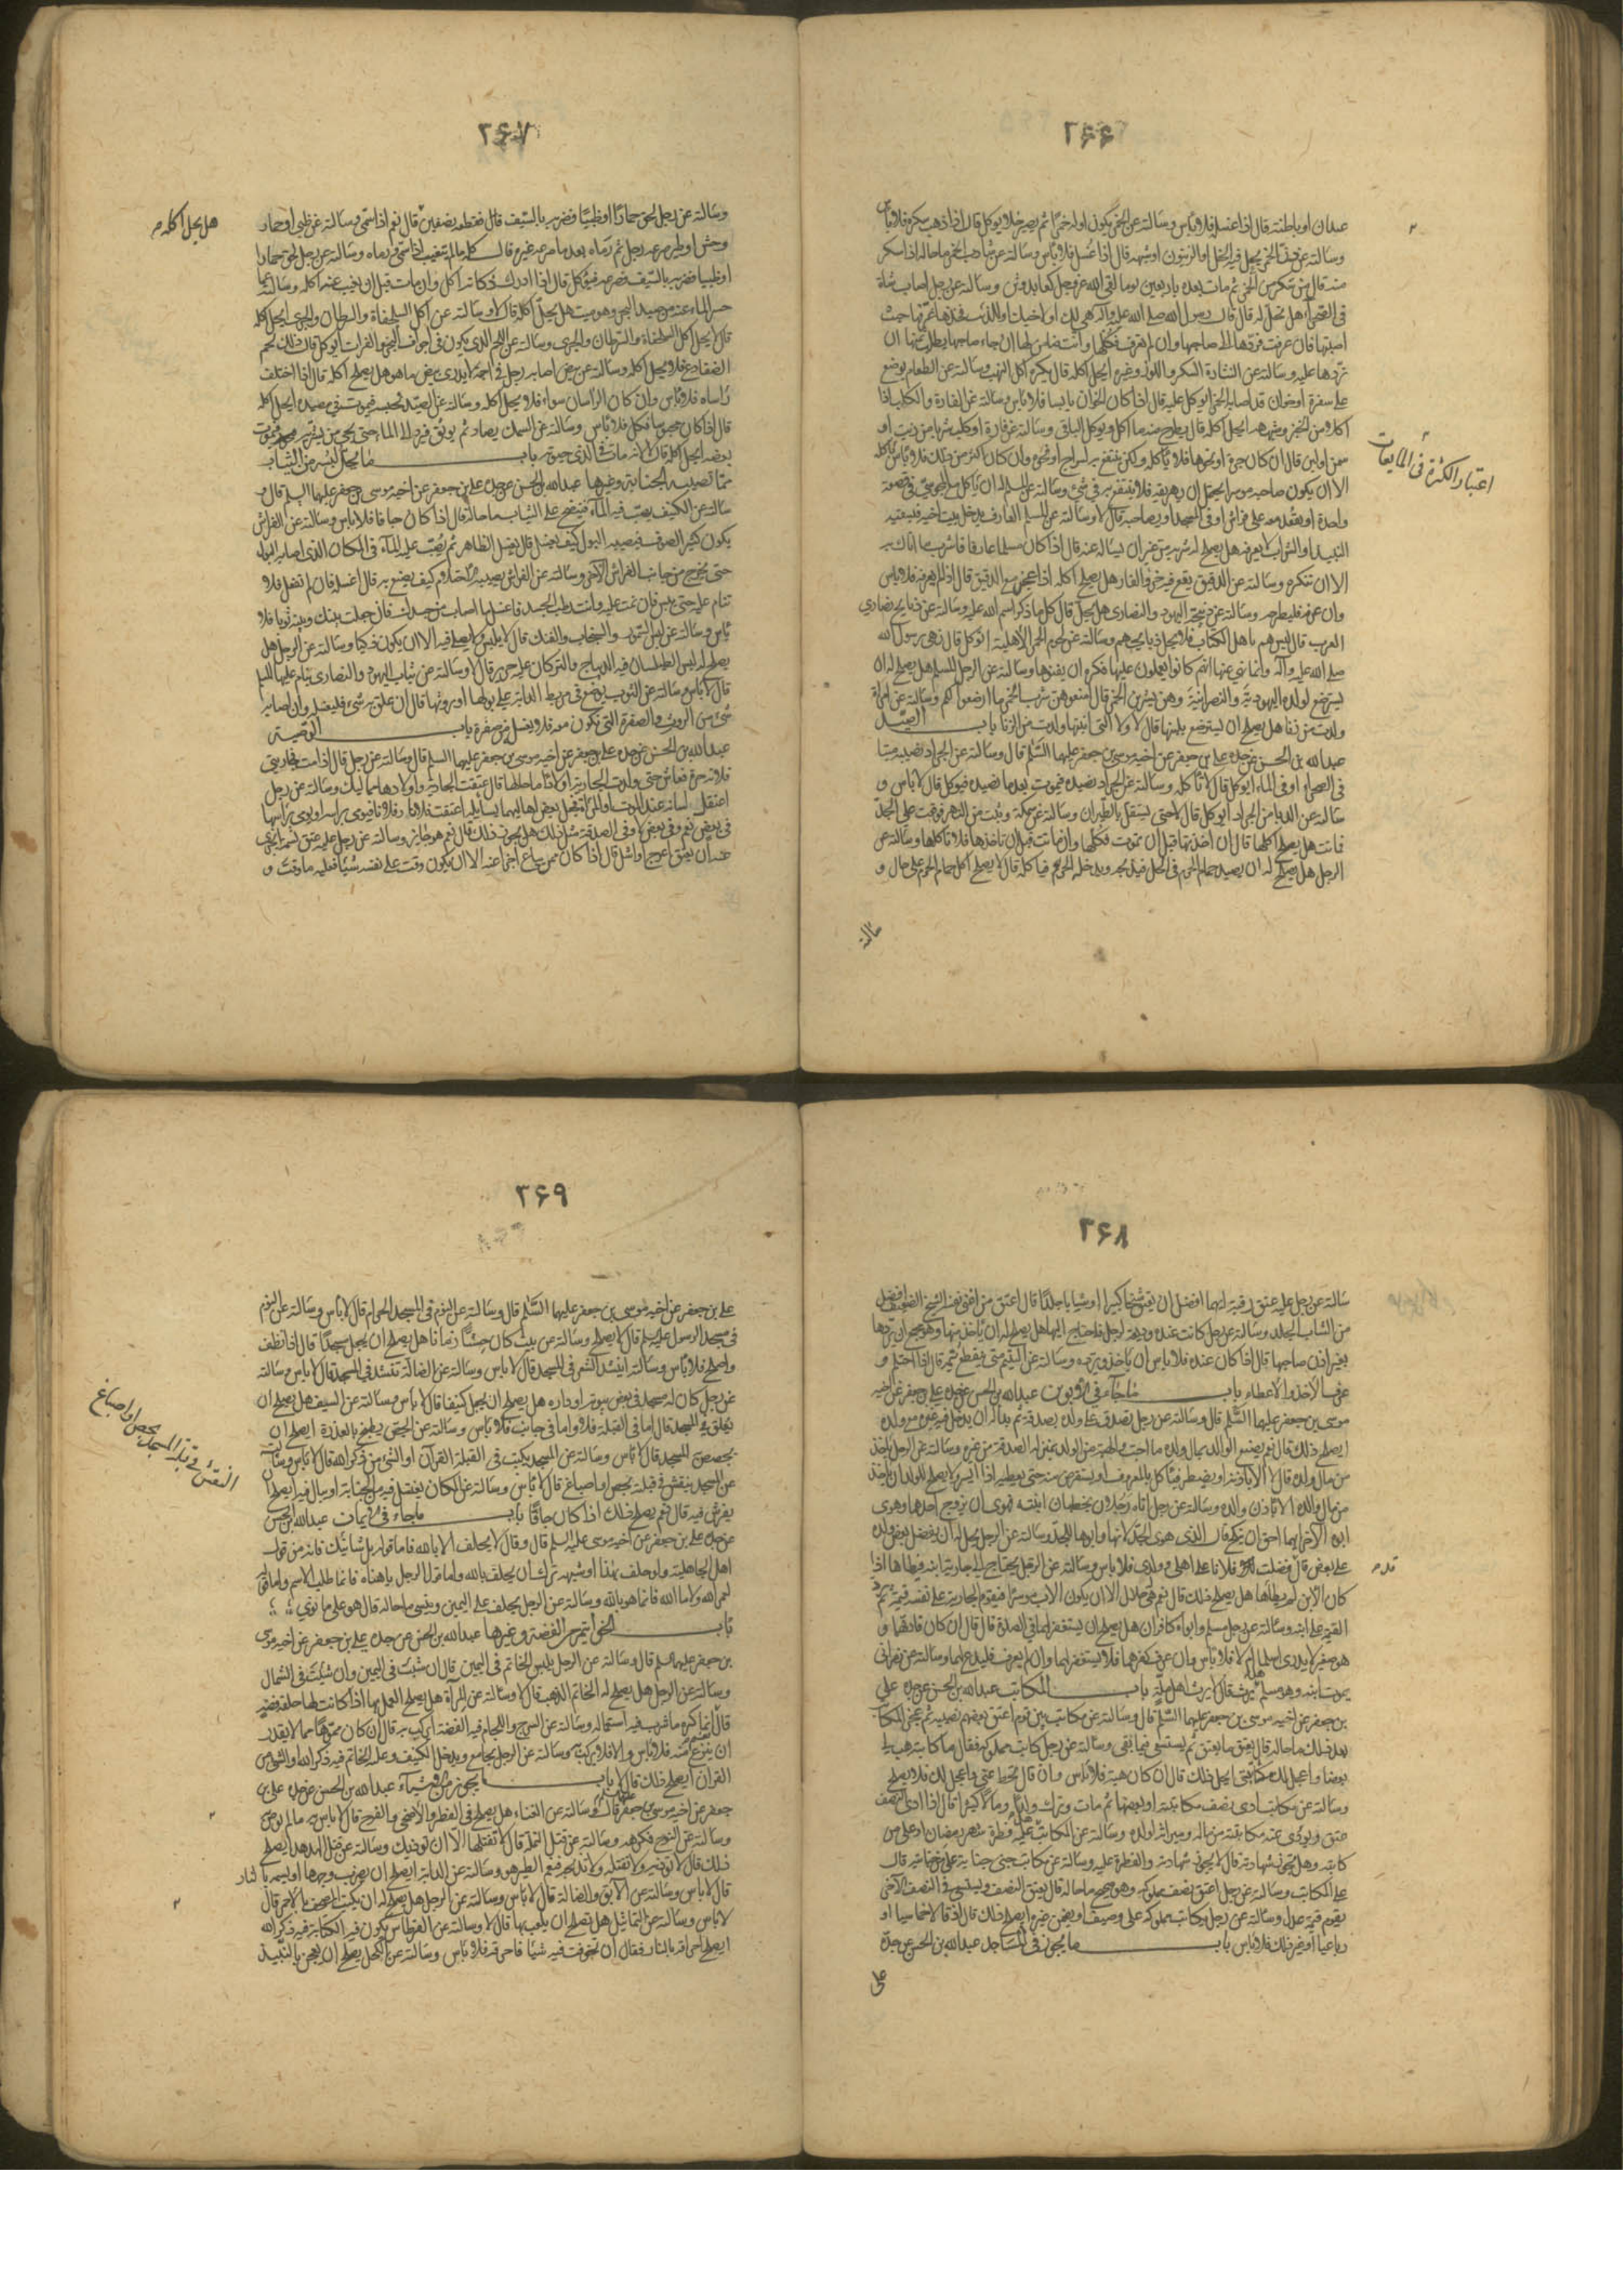 ۲۶۶
عيدان او باطنة قال اذا غسله فلا باس وسالته عن الخمر يكون اوله خمرا ثم يصير خلا يوكل قال اذا ذهب سكره فلا باس
وسالته عن الخمر يجعل فيه الخل او الزيتون او شبهه قال اذا غسل فلا باس وسالته عن شارب الخمر ما حاله اذا سكر
منه قال من سكر من الخمر ثم مات بعده باربعين يوما لقى الله عز وجل كعابد وثن وسالته عن رجل اصاب شاة
فى الصحراء هل تحل له قال قال رسول الله صلى الله عليه وآله هى لك او لاخيك او للذئب فخذها عرفها حيث
اصبتها فان عرفت فردها الى صاحبها وان لم تعرف فكلها وانت ضامن لها ان جاء صاحبها يطلب ثمنها ان
تردها عليه وسالته عن النثارة السكر واللوز وغيره ايحل اكله قال يكره اكل النهب وسالته عن الطعام يوضع
على سفرة او خوان قد اصابه الخمر ايوكل عليه قال اذا كان الخوان يابسا فلا باس وسالته عن الفارة والكلب اذا
اكلا من الخبز وشبهه ايحل اكله قال يطرح منه ما اكل ويوكل الباقى وسالته عن فارة او كلب شربا من زيت او
سمن او لبن قال ان كان جرة او نحوها فلا ياكله ولكن ينتفع به لسراج او نحوه وان كان اكثر من ذلك فلا باس باكله
الا ان يكون صاحبه موسرا يحتمل ان يهريقه فلا ينتفع به فى شئ وسالته عن المسلم له ان ياكل مع المجوسى فى قصعة
واحدة او يقعد معه على فراش او فى المسجد او يصاحبه قال لا وسالته عن المسلم العارف يدخل بيت اخيه فيسقيه
النبيذ او الشراب لا يعرفه هل يصلح له شربه من غير ان يساله عنه قال اذا كان مسلما عارفا فاشرب ما اتاك به
الا ان تنكره وسالته عن الدقيق يقع فيه خرؤ الفار هل يصلح اكله اذا عجن مع الدقيق قال اذا لم يعرفه فلا باس
وان عرفه فليطرحه وسالته عن ذبيحة اليهود والنصارى هل تحل قال كل ما ذكر اسم الله عليه وسالته عن ذبايح نصارى
العرب قال ليس هم باهل الكتاب فلا يحل ذبايحهم وسالته عن لحوم الحمر الاهلية اتوكل قال نهى رسول الله
صلى الله عليه وآله وانما نهى عنها انهم كانوا يعملون عليها فكره ان يفنوها وسالته عن الرجل المسلم هل يصلح له ان
يسترضع لولده اليهودية والنصرانية وهن يشربن الخمر قال امنعوهن من شرب الخمر ما ارضعن لكم وسالته عن امراة
ولدت من زنا هل يصلح ان يسترضع بلبنها قال لا ولا التى ابنتها ولدت من الزنا باب الصيد
عبد الله بن الحسن عن جده على بن جعفر عن اخيه موسى بن جعفر عليهما السلم قال وسالته عن الجراد نصيده ميتا
فى الصحراء او فى الماء ايوكل قال لا تاكله وسالته عن الجراد نصيده فيموت بعد ما نصيده فيوكل قال لا باس و
سالته عن الدبا من الجراد ايوكل قال لا حتى يستقل بالطيران وسالته عن سمكة وثبت من النهر فوقعت على الجد
فماتت هل يصلح اكلها قال ان اخذتها قبل ان تموت فكلها وان ماتت قبل ان تاخذها فلا تاكلها وسالته عن
الرجل هل يصلح له ان يصيد حمام الحرم فى الحل فيذبحه ويدخله الحرم فياكله قال لا يصلح اكل حمام الحرم على حال و
سالته
اعتبار الكثرة فى المايعات
۲۶۷
وسالته عن رجل لحق حمارا او ظبيا فضربه بالسيف فقطعه بنصفين قال نعم اذا سمى وسالته عن ظبى او حمار
وحش او طير صرعه رجل ثم رماه بعد ما صرعه غيره قال كله ما لم يتغيب اذا سمى ورماه وسالته عن رجل لحق حمارا
او ظبيا فضربه بالسيف فصرعه فيوكل قال اذا ادرك ذكاته اكل وان مات قبل ان يغيب عنه اكله وسالته عما
حسر الماء عنه من صيد البحر وهو ميت هل يحل اكله قال لا وسالته عن اكل السلحفاة والسرطان والجرى ايحل اكله
قال لا يحل اكل السلحفاة والسرطان والجرى وسالته عن اللحم الذى يكون فى اجواف البحر والفرات ايوكل قال ذلك لحم
الضفادع فلا يحل اكله وسالته عن بيض اصابه رجل فى اجمة لا يدرى بيض ما هو هل يصلح اكله قال اذا اختلف
راساه فلا باس وان كان الراسان سواء فلا يحل اكله وسالته عن الصيد يحبسه فيموت فى مصيدته ايحل اكله
قال اذا كان محبوسا فكل فلا باس وسالته عن السمك يصاد ثم يوثق فيرد الى الماء حتى يجئ من يشتريه فيموت
بعضه ايحل اكله قال لا لانه مات فى الذى حيوته باب ما يحل لبسه من الثياب
مما تصيبه الجنابة وغيرها عبد الله بن الحسن عن جده على بن جعفر عن اخيه موسى بن جعفر عليهما السلم قال و
سالته عن الكنيف يصب فيه الماء فينضح على الثياب ما حاله قال اذا كان جافا فلا باس وسالته عن الفراش
يكون كثير الصوف فيصيبه البول كيف يغسل قال يغسل الظاهر ثم يصب عليه الماء فى المكان الذى اصابه البول
حتى يخرج من جانب الفراش الآخر وسالته عن الفراش يصيبه الاحتلام كيف يصنع به قال اغسله فان لم تفعل فلا
تنام عليه حتى ييبس فان نمت عليه وانت رطب الجسد فاغسل ما اصاب من جسدك فان جعلت بينك وبينه ثوبا فلا
باس وسالته عن لبس السمور والسنجاب والفنك قال لا يلبس ولا يصلى فيه الا ان يكون ذكيا وسالته عن الرجل هل
يصلح له لبس الطيلسان فيه الديباج والبركان عليه حرير قال لا وسالته عن ثياب اليهود والنصارى ينام عليها المسلم
قال لا باس وسالته عن الثوب يوضع فى مربط الدابة على بولها او روثها قال ان علق به شئ فليغسله وان اصابه
شئ من الروث والصفرة التى تكون معه فلا يغسله من صفرة باب الوصية
عبد الله بن الحسن عن جده على بن جعفر عن اخيه موسى بن جعفر عليهما السلم قال وسالته عن رجل قال اذا مت فجاريتى
فلانة حرة فعاش حتى ولدت الجارية اولادا ما حالها قال عتقت الجارية واولادها مماليك وسالته عن رجل
اعتقل لسانه عند الموت او المراة فجعل بعض اهاليهما يسايله اعتقت فلانا وفلانا فيومى براسه او يومى براسها
فى بعض نعم وفى بعض لا وفى الصدقة مثل ذلك هل يجوز ذلك قال نعم هو جايز وسالته عن رجل عليه عتق نسمة ايجزى
عنه ان يعتق اعرج او اشل قال اذا كان ممن يباع اجزا عنه الا ان يكون وقت على نفسه شيئا فعليه ما وقت و
هل يحل اكله م
۲۶۸
سالته عن رجل عليه عتق رقبة ايهما افضل ان يعتق شيخا كبيرا او شابا جلدا قال اعتق من اغنى نفسه الشيخ الضعيف افضل
من الشاب الجلد وسالته عن رجل كانت عنده وديعة لرجل فاحتاج اليها هل يصلح له ان ياخذ منها وهو مجمع ان يردها
بغير اذن صاحبها قال اذا كان عنده فلا باس ان ياخذ ويرده وسالته عن اليتيم متى ينقطع يتمه قال اذا احتلم و
عرف الاخذ والاعطاء باب ما جاء فى الابوين عبد الله بن الحسن عن جده على بن جعفر عن اخيه
موسى بن جعفر عليهما السلم قال وسالته عن رجل تصدق على ولده بصدقة ثم بدا له ان يدخل فيه غيره مع ولده
ايصلح ذلك قال نعم يصنع الوالد بمال ولده ما احب والهبة من الولد بمنزلة الصدقة من غيره وسالته عن الرجل ياخذ
من مال ولده قال لا الا باذنه او يضطر فياكل بالمعروف او يستقرض منه حتى يعطيه اذا ايسر ولا يصلح للولد ان ياخذ
من مال والده الا باذن والده وسالته عن رجل اتاه رجلان يخطبان ابنته فهوى ان يزوج احدهما وهوى
ابوه الآخر ايهما احق ان ينكح قال الذى هوى الجد لانها واباها للجد وسالته عن الرجل يحل له ان يفضل بعض ولده
على بعض قال فضلت فلانا على اهلى وولدى فلا باس وسالته عن الرجل يحتاج الى جارية ابنه فيطاها اذا
كان الابن لم يطاها هل يصلح ذلك قال نعم هى حلال الا ان يكون الاب موسرا فيقوم الجارية على نفسه قيمة ثم يرد
القيمة على ابنه وسالته عن رجل مسلم وابواه كافران هل يصلح ان يستغفر لهما فى الصلوة قال ان كان فارقهما و
هو صغير لا يدرى اسلما ام لا فلا باس وان عرف كفرهما فلا يستغفر لهما وان لم يعرف فليدع لهما وسالته عن نصرانى
يموت ابنه وهو مسلم هل يرث قال لا يرث اهل ملة باب المكاتب عبد الله بن الحسن عن جده على
بن جعفر عن اخيه موسى بن جعفر عليهما السلم قال وسالته عن مكاتب بين قوم اعتق بعضهم نصيبه ثم عجز المكاتب
بعد ذلك ما حاله قال يعتق ما يعتق ثم يستسعى فيما بقى وسالته عن رجل كاتب مملوكه فقال ما كاتبته هب لى
بعضا واعجل لك مكاتبتى ايحل ذلك قال ان كان هبة فلا باس وان قال تحط عنى واعجل لك فلا يصلح
وسالته عن مكاتب ادى نصف مكاتبته او بعضها ثم مات وترك ولدا ومالا كثيرا قال اذا ادى النصف
عتق ويؤدى عنه مكاتبته من ماله وميراثه لولده وسالته عن المكاتب هل عليه فطرة شهر رمضان او على من
كاتبه وهل يجوز شهادته قال لا يجوز شهادته والفطرة عليه وسالته عن مكاتب جنى جناية على من جنايته قال
على المكاتب وسالته عن رجل اعتق نصف مملوكه وهو صحيح ما حاله قال يعتق النصف ويستسعى فى النصف الآخر
يقوم قيمة عدل وسالته عن رجل يكاتب مملوكه على وصيف او يضمن عنه غيره ايصلح ذلك قال اذا قال خماسيا او
رباعيا او غير ذلك فلا باس باب ما يجوز فى المساجد عبد الله بن الحسن عن جده
على
۲۶۹
على بن جعفر عن اخيه موسى بن جعفر عليهما السلم قال وسالته عن النوم فى المسجد الحرام قال لا باس وسالته عن النوم
فى مسجد الرسول عليه السلم قال لا يصلح وسالته عن بيت كان حشا زمانا هل يصلح ان يجعل مسجدا قال اذا نظف
واصلح فلا باس وسالته اينشد الشعر فى المسجد قال لا باس وسالته عن الضالة تنشد فى المسجد قال لا باس وسالته
عن رجل كان له مسجد فى بعض بيوته او داره هل يصلح ان يجعل كنيفا قال لا باس وسالته عن السيف هل يصلح ان
يعلق فى المسجد قال اما فى القبلة فلا واما فى جانب فلا باس وسالته عن الجص يطبخ بالعذرة ايصلح ان
يجصص به المسجد قال لا باس وسالته عن المسجد يكتب فى القبلة القرآن او الشئ من ذكر الله قال لا باس وسالته
عن المسجد ينقش فى قبلته بجص او اصباغ قال لا باس وسالته عن المكان يغتسل فيه من الجنابة او يبال فيه ايصلح ان
يفرش فيه قال نعم يصلح ذلك اذا كان جافا باب ما جاء فى الايمان عبد الله بن الحسن
عن جده على بن جعفر عن اخيه موسى عليه السلم قال وقال لا يحلف الا بالله فاما قوله لا بل شانئك فانه من قول
اهل الجاهلية ولو حلف بهذا او شبهه ترك ان يحلف بالله واما قول الرجل يا هناه فانما طلب الاسم واما قوله
لعمر الله وايم الله فانما هو بالله وسالته عن الرجل يحلف على اليمين وينسى ما حاله قال هو على ما نوى
باب الخواتيم من الفضة وغيرها عبد الله بن الحسن عن جده على بن جعفر عن اخيه موسى
بن جعفر عليهما السلم قال وسالته عن الرجل يلبس الخاتم فى اليمين قال ان شئت فى اليمين وان شئت فى الشمال
وسالته عن الرجل هل يصلح له الخاتم الذهب قال لا وسالته عن المرآة هل يصلح العمل بها اذا كانت لها حلقة فضة
قال انما كره ما شرب فيه استعماله وسالته عن السرج واللجام فيه الفضة ايركب به قال ان كان مموها مما لا يقدر
ان ينزع منه فلا باس والا فلا يركب به وسالته عن الرجل يجامع ويدخل الكنيف وعليه الخاتم فيه ذكر الله والشئ من
القرآن ايصلح ذلك قال لا باب ما يجوز من الاشياء عبد الله بن الحسن عن جده على بن
جعفر عن اخيه موسى بن جعفر عليهما السلم قال وسالته عن الغناء هل يصلح فى الفطر والاضحى والفرح قال لا باس به ما لم يؤمر به
وسالته عن النوح فكرهه وسالته عن قتل النملة قال لا تقتلها الا ان توذيك وسالته عن قتل الهدهد ايصلح
ذلك قال لا توذيه ولا تقتله ولا تذبحه فنعم الطير هو وسالته عن الدابة ايصلح ان يضرب وجهها او يسمه بالنار
قال لا باس وسالته عن الآبق والضالة قال لا باس وسالته عن الرجل هل يصلح له ان يكتب المصحف بالاحمر قال
لا باس وسالته عن التماثيل هل يصلح ان يلعب بها قال لا وسالته عن القرطاس يكون فيه الكتابة فيه ذكر الله
ايصلح احراقه بالنار فقال ان تخوفت فيه شيئا فاحرقه فلا باس وسالته عن الكحل يصلح ان يعجن بالنبيذ
النقش فى قبلة المسجد بجص او اصباغ